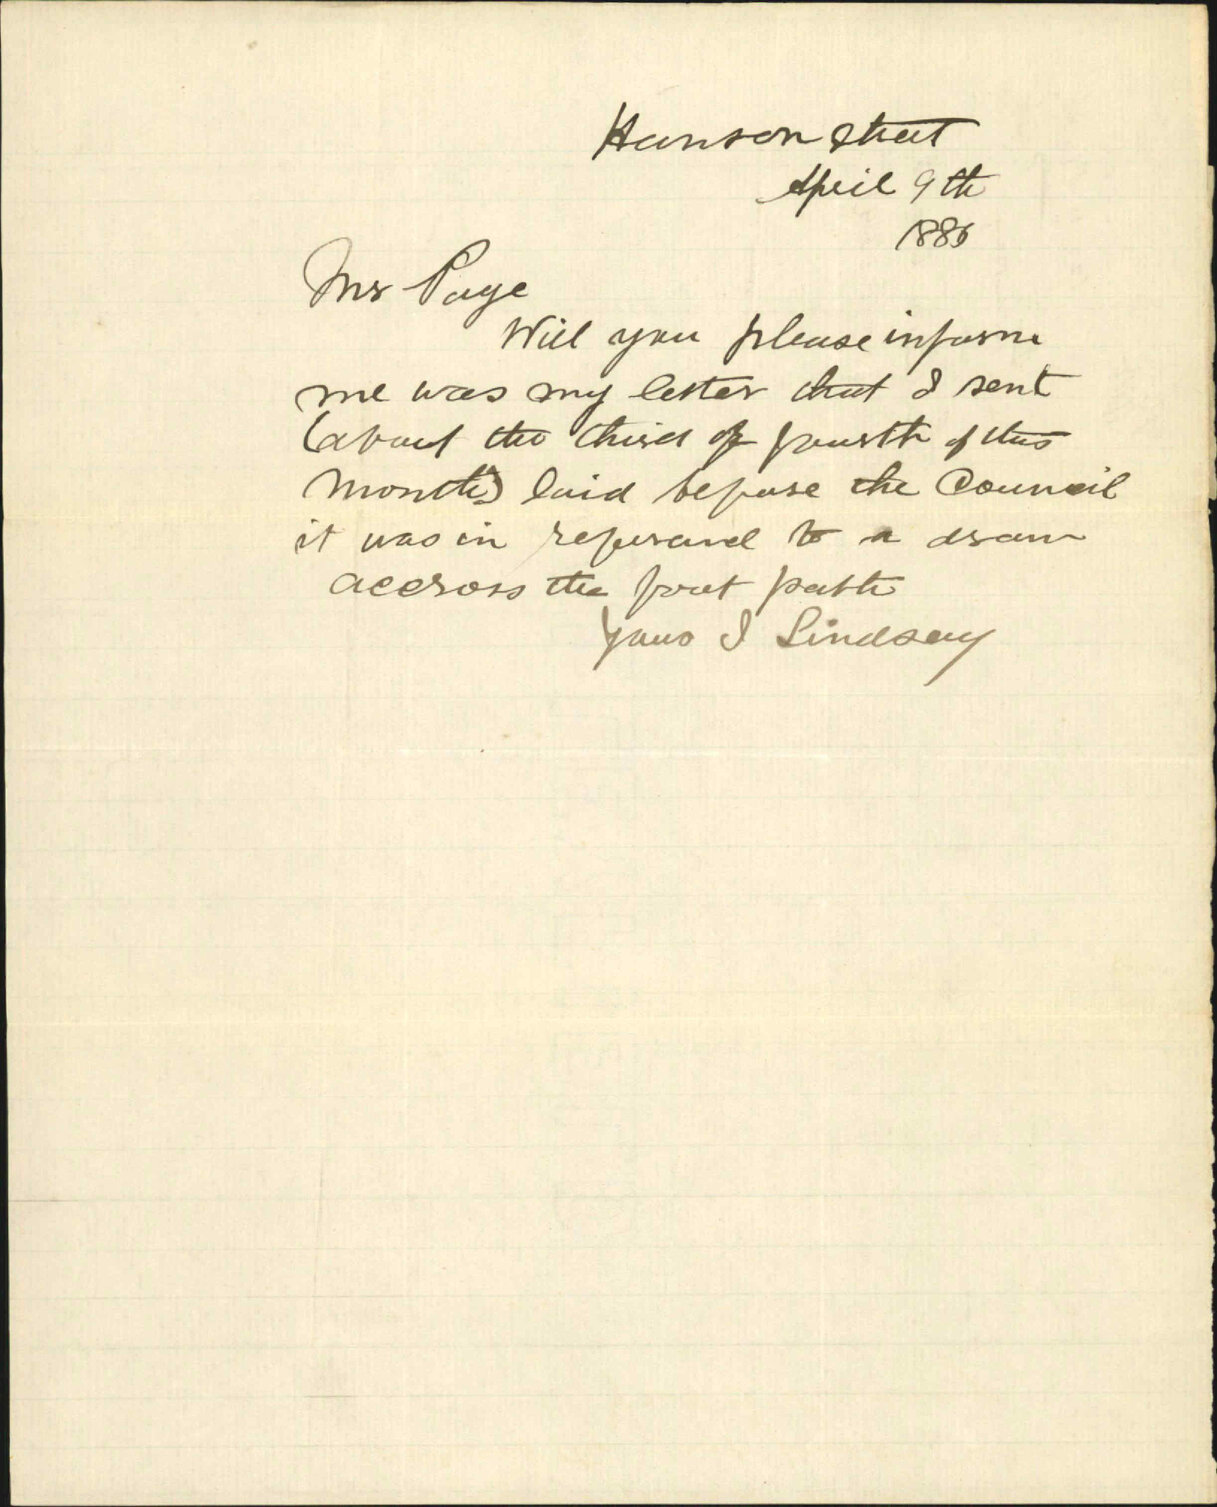 Hanson Street
April 9th
1886
Mr Page
Will you please inform
me was my letter that I sent
(about the third or fourth of this
Month) laid before the Council
it was in reference to a drain
accross the foot path
Yours J Lindsay